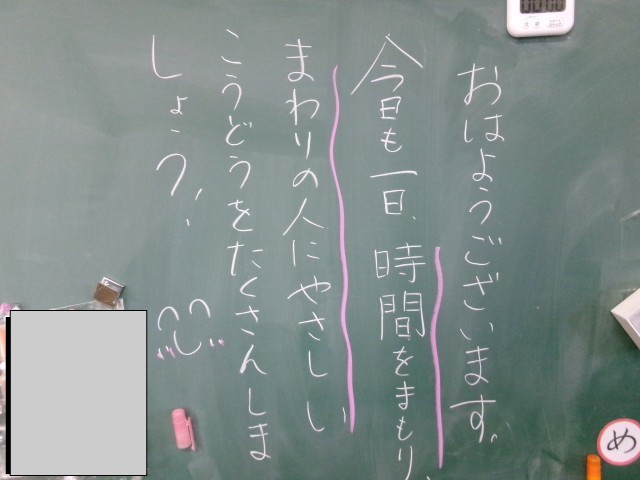 おはようございます。
今日も一日、時間をまもり、
まわりの人にやさしい
こうどうをたくさんしま
しょう！
め